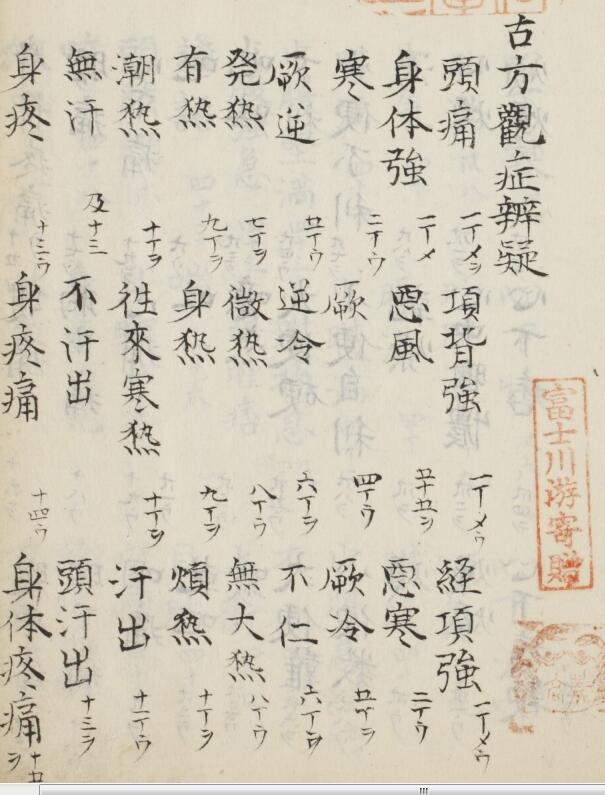 古方觀症辨疑
頭痛 一丁メヲ 項背強 一丁メウ 経項強 一丁メウ
身体強 一丁メ 悪風 悪寒 二丁ウ
寒 二丁ウ 厥 四丁ウ 厥冷
厥逆 逆冷 六丁ヲ 不仁 六丁ヲ
発熱 七丁ヲ 微熱 八丁ウ 無大熱 八丁ウ
有熱 九丁ヲ 身熱 九丁ヲ 煩熱 十丁ヲ
潮熱 十丁ヲ 往來寒熱 十一丁ヲ 汗出
無汗 及十三 不汗出 頭汗出 十三ヲ
身疼 十三ウ 身疼痛 十四ウ 身体疼痛
富士川游寄贈